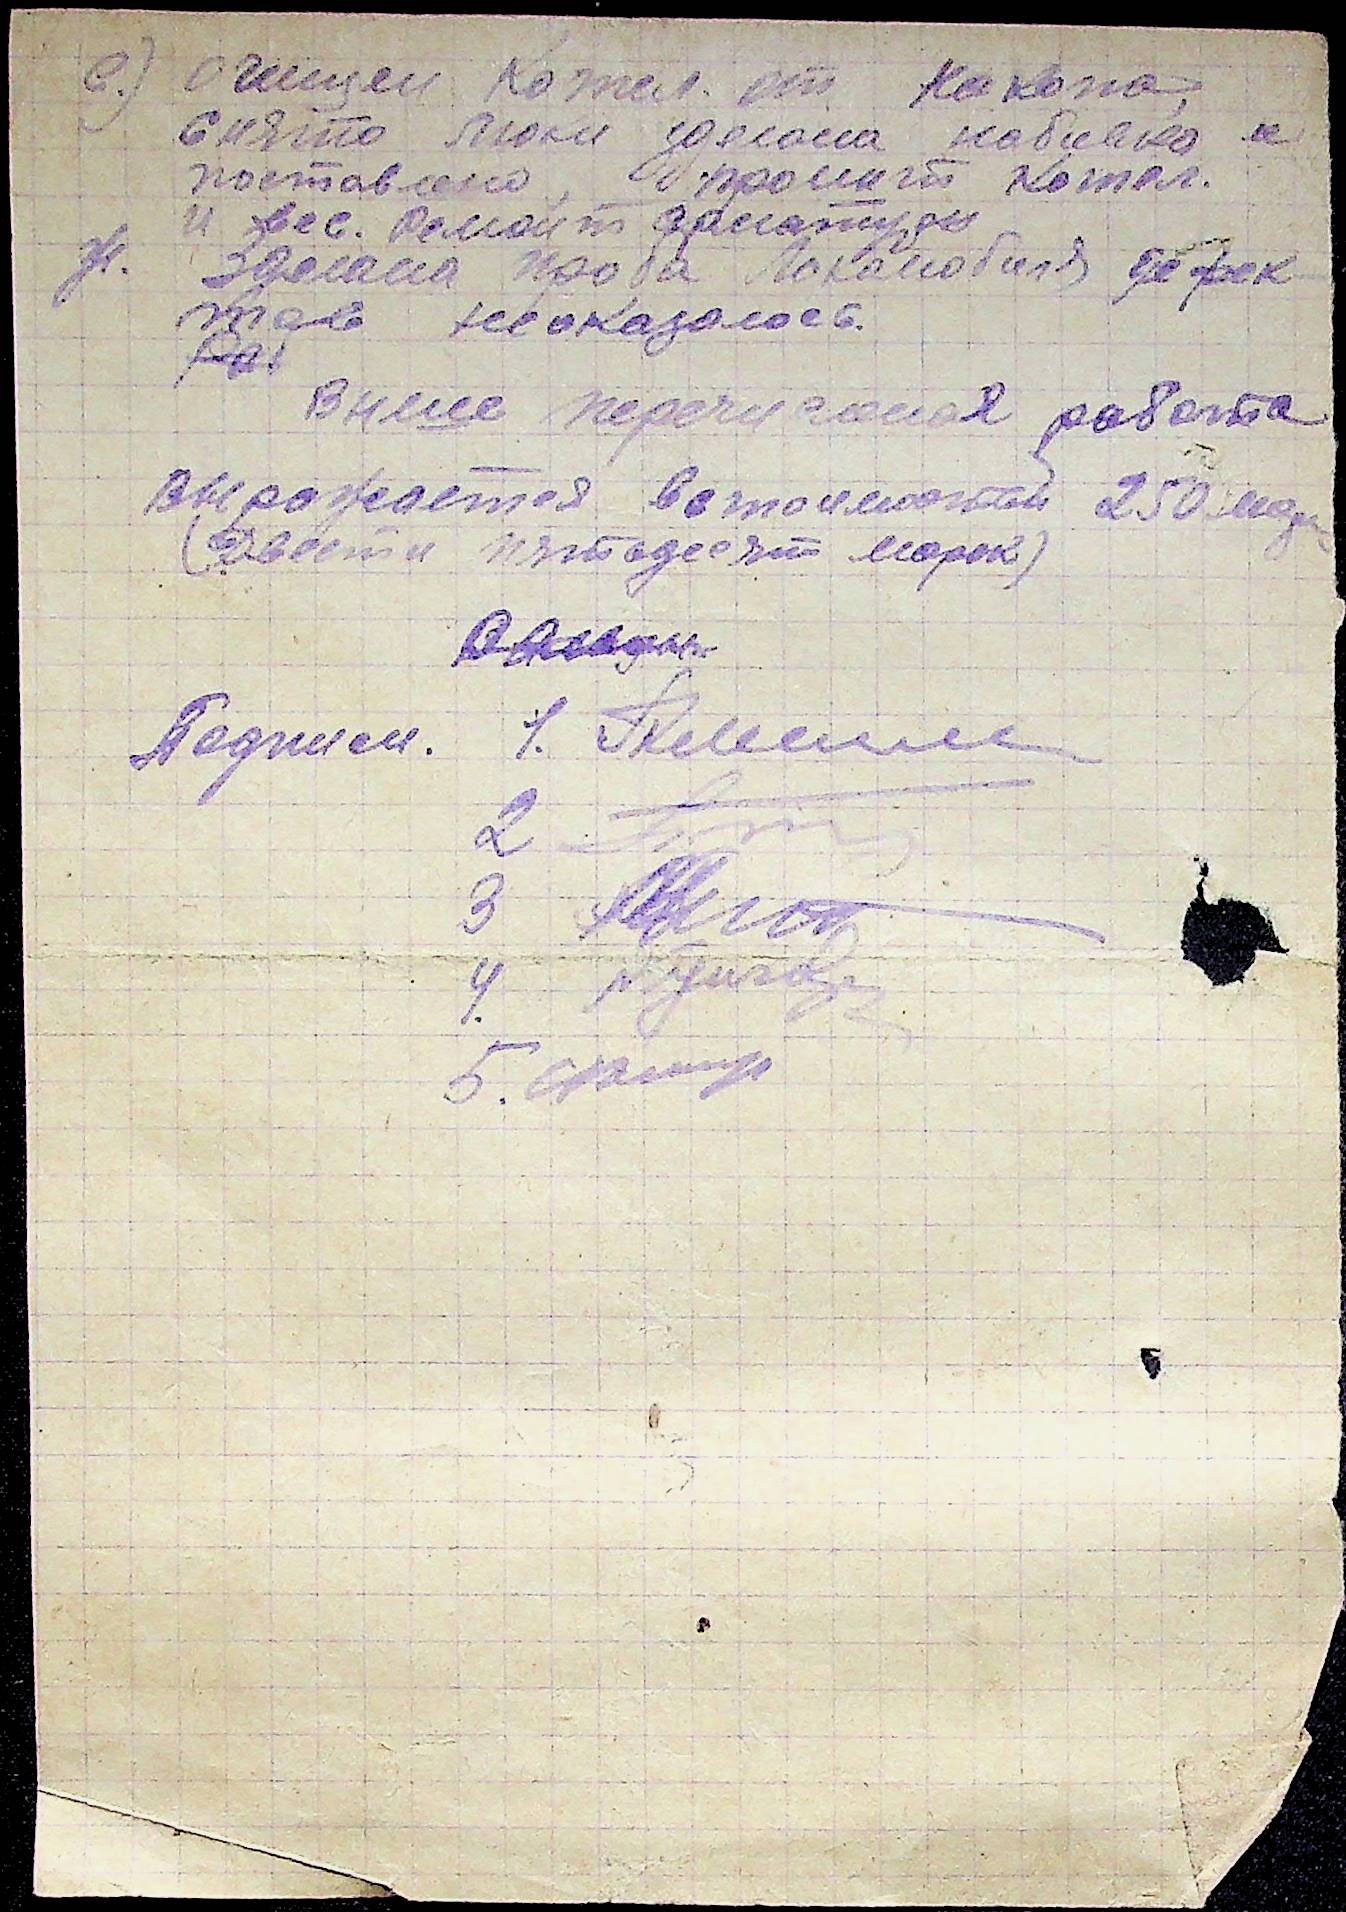 е.) Очищен котел. от накопа,
снято люки зделана набивка и
поставлено, промыт котел.
и вес. Ремонт арматуры
ж. Зделана проба Локомобиля дефек
тов неоказалось.
Выше перечисленая работа
выражается встоимостью 250 мар
(Двести пятьдесят марок)
Подписи. 1.
2
3
4.
5.